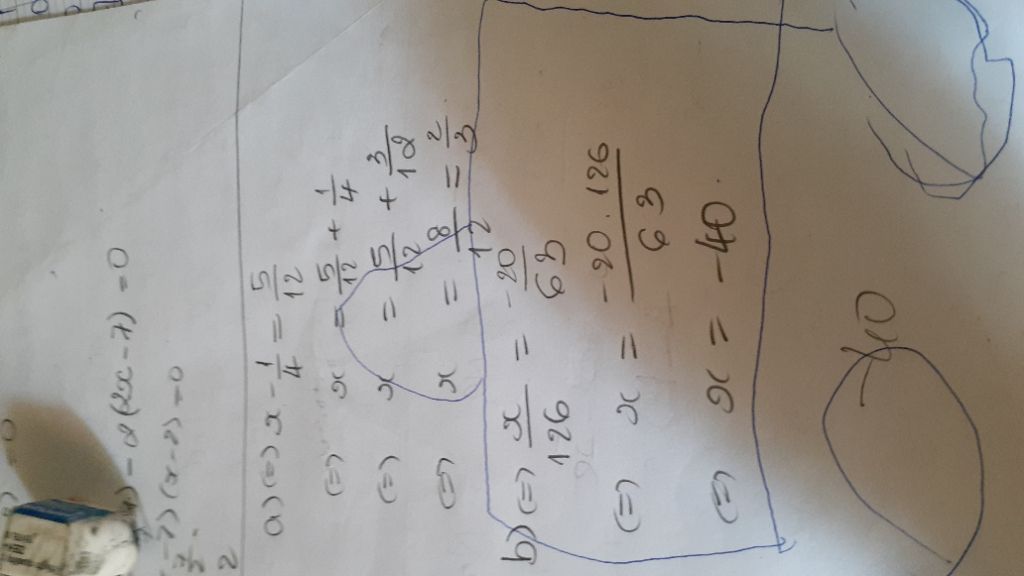 = 0
- 2(2x - 7) = 0
- 7)(x - 2) = 0
7/2
2
a) (=) x - 1/4 = 5/12
(=) x = 5/12 + 1/4
(=) x = 5/12 + 3/12
(=) x = 8/12 = 2/3
b) (=) x/126 = -20/63
(=) x = -20.126/63
(=) x = -40.
-40